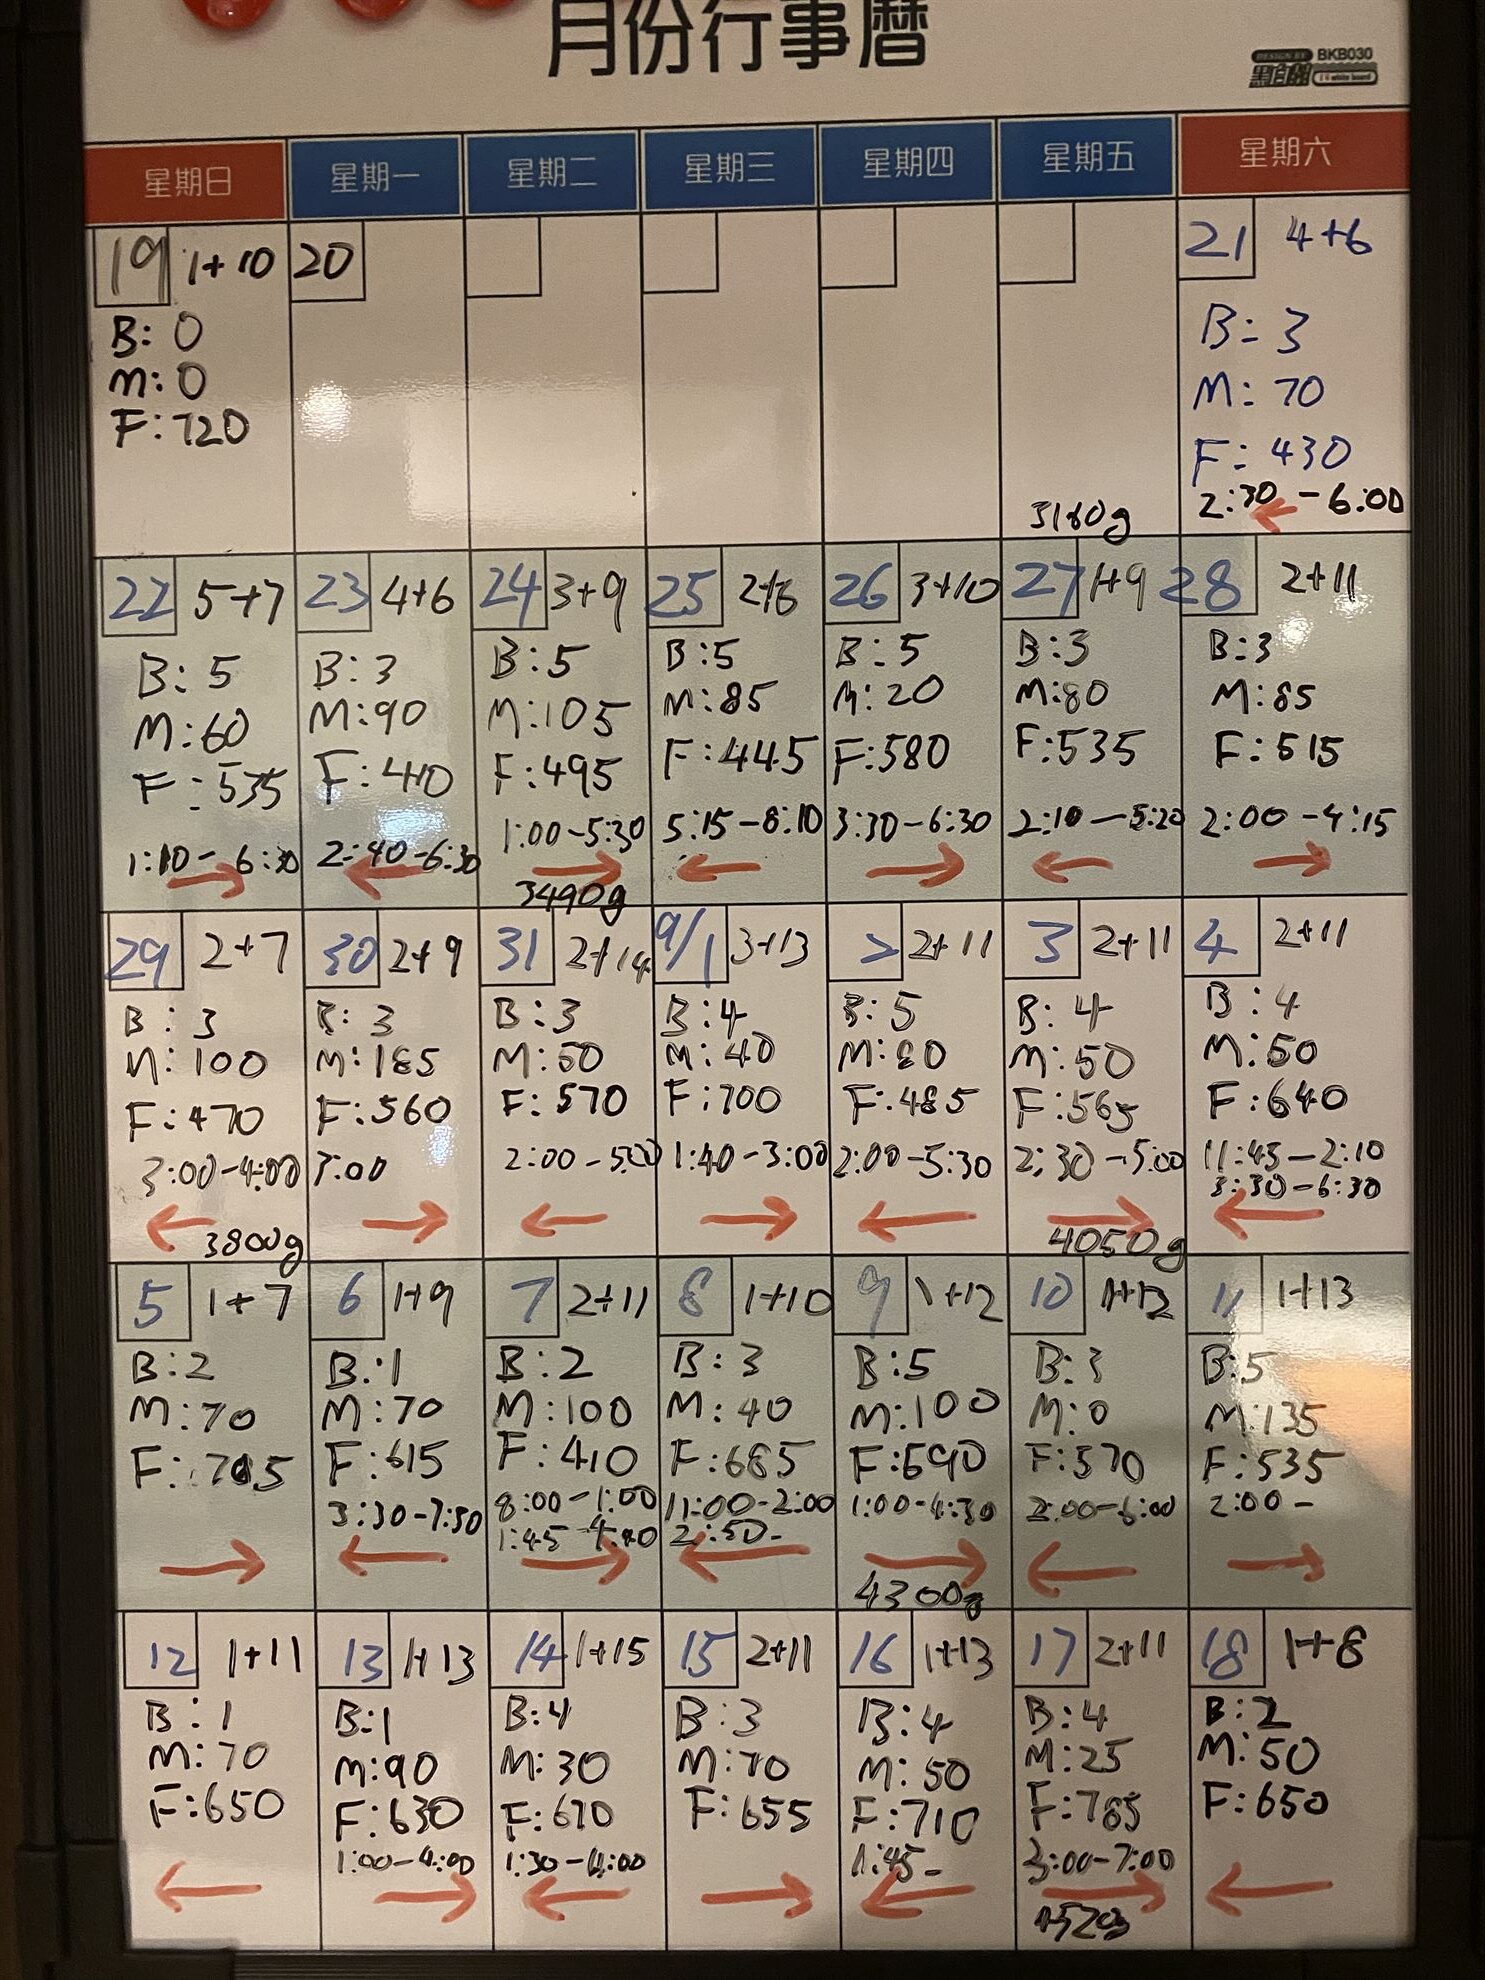 月份行事曆
BKB030
星期日
星期一
星期二
星期三
星期四
星期五
星期六
19 1+10
B: 0
M: 0
F: 720
20
21 4+6
B: 3
M: 70
F: 430
2:30 - 6:00
22 5+7
B: 5
M: 60
F: 535
1:10 - 6:30
23 4+6
B: 3
M: 90
F: 410
2:40-6:30
24 3+9
B: 5
M: 105
F: 495
1:00-5:30
3490g
25
B: 5
M: 85
F: 445
5:15-8:10
26 3+10
B: 5
M: 20
F: 580
3:30-6:30
3180g
27 1+9
B: 3
M: 80
F: 535
2:10-5:20
28 2+11
B: 3
M: 85
F: 515
2:00-4:15
29 2+7
B: 3
M: 100
F: 470
3:00-4:00
3800g
30 2+9
B: 3
M: 185
F: 560
3:00
31 2+14
B: 3
M: 50
F: 570
2:00-5:00
9/1 3+13
B: 4
M: 40
F: 700
1:40-3:00
2 2+11
B: 5
M: 80
F: 485
2:00-5:30
3 2+11
B: 4
M: 50
F: 565
2:30-5:00
4050g
4 2+11
B: 4
M: 50
F: 640
11:45-2:10
3:30-6:30
5 1+7
B: 2
M: 70
F: 705
6 1+9
B: 1
M: 70
F: 615
3:30-7:30
7 2+11
B: 2
M: 100
F: 410
8:00-1:00
1:45-4:40
8 1+10
B: 3
M: 40
F: 685
11:00-2:00
2:50-
9 1+12
B: 5
M: 100
F: 590
1:00-4:30
4300g
10 1+12
B: 3
M: 0
F: 570
2:00-6:00
11 1+13
B: 5
M: 135
F: 535
2:00-
12 1+11
B: 1
M: 70
F: 650
13 1+13
B: 1
M: 90
F: 630
1:00-4:00
14 1+15
B: 4
M: 30
F: 670
1:30-4:00
15 2+11
B: 3
M: 70
F: 655
16 1+13
B: 4
M: 50
F: 710
1:45-
17 2+11
B: 4
M: 25
F: 785
3:00-7:00
4520g
18 1+8
B: 2
M: 50
F: 650